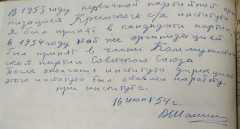 В 1953 году первичной партийной
организацией Крымского с/х института
я был принят в кандидаты партии.
В 1954 году той же организацией
был принят в члены Коммунис-
тической партии Советского Союза
После окончания института дирекцией
этого института был оставлен на работу
при институте.
16 июня 54 г.